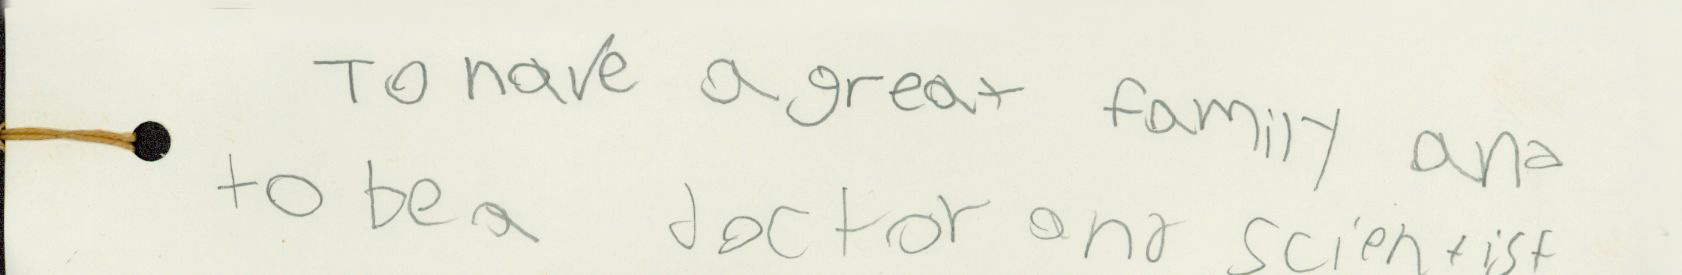 To have a great family and
to be a doctor and scientist